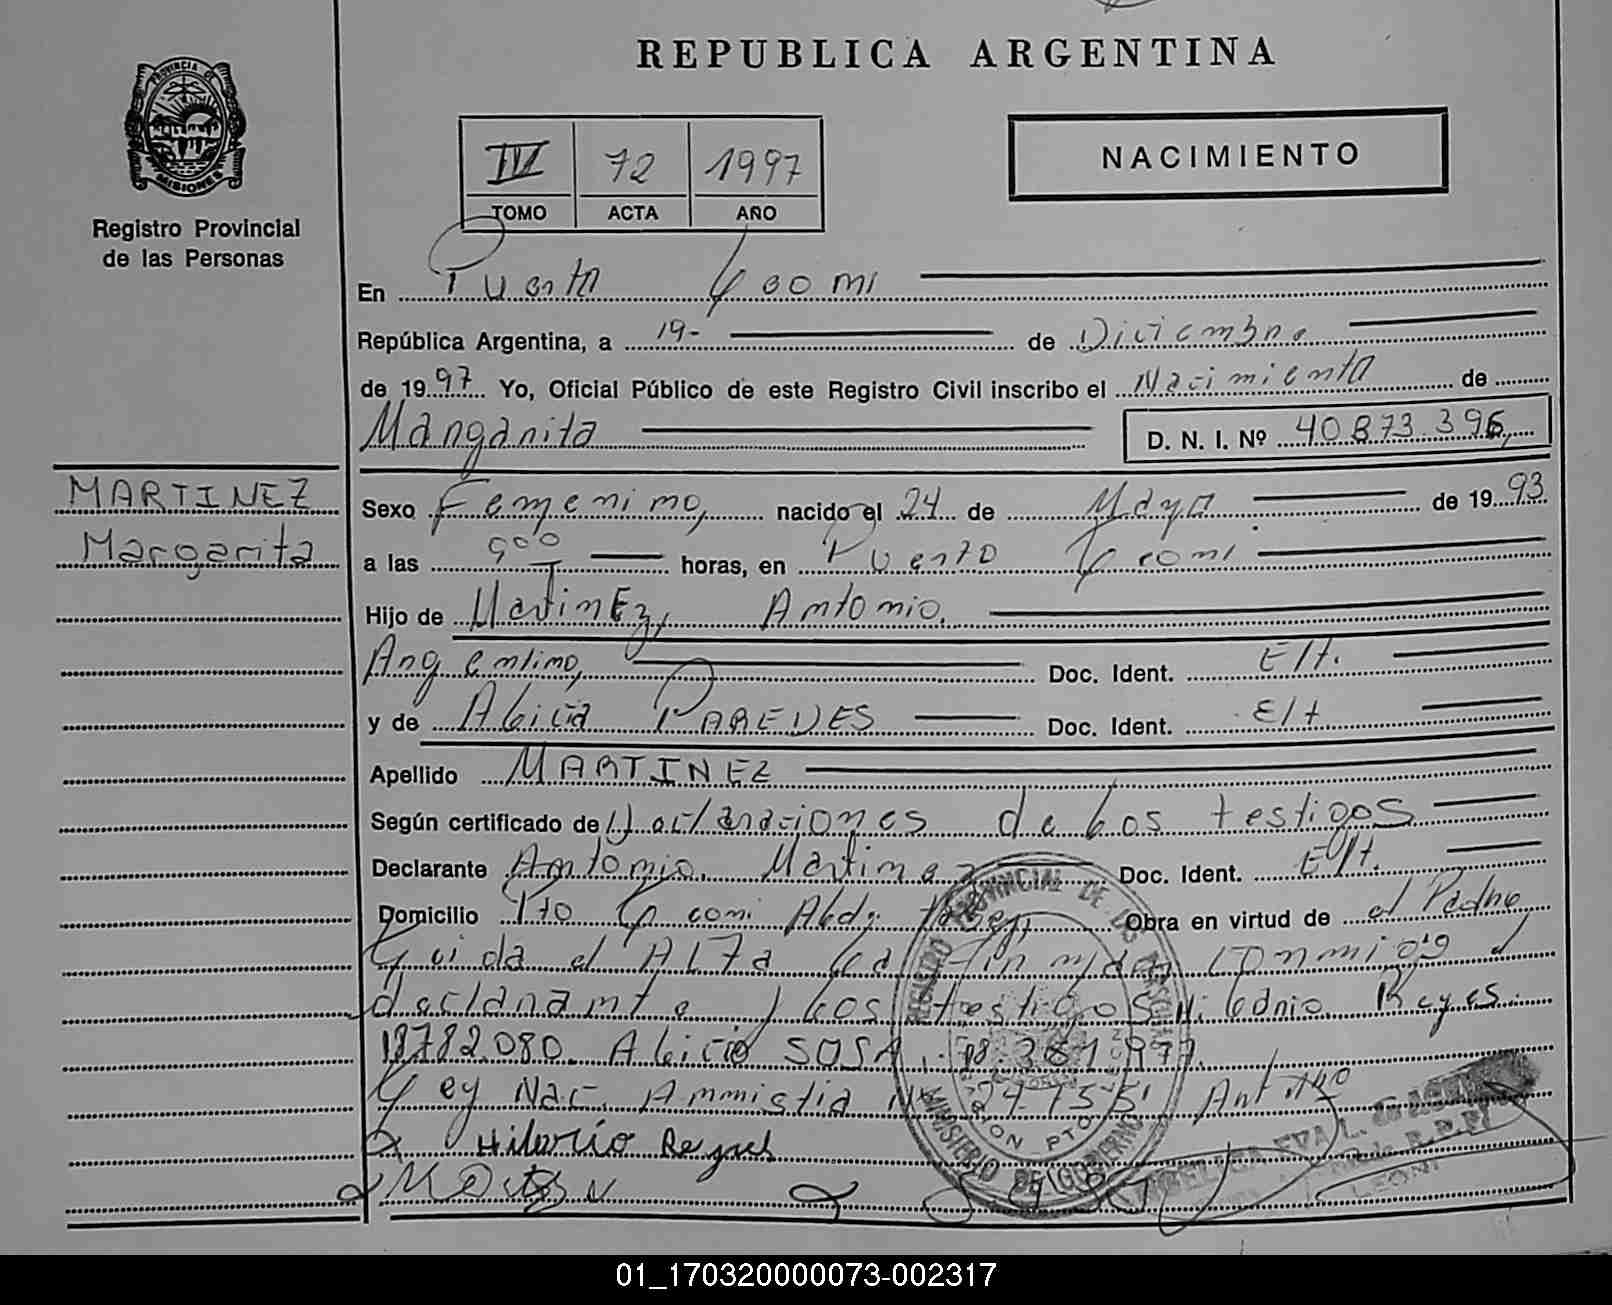 REPUBLICA ARGENTINA
PROVINCIA DE
MISIONES
Registro Provincial
de las Personas
IV 72 1997
TOMO ACTA AÑO
NACIMIENTO
En Puerto Leoni
República Argentina, a 19- de Diciembre
de 1997 Yo, Oficial Público de este Registro Civil inscribo el Nacimiento de
Margarita D. N. I. Nº 40.873.396,
MARTINEZ
Margarita
Sexo Femenino, nacido el 24 de Mayo de 1993
a las 9ººº horas, en Puerto Leoni
Hijo de Martinez, Antonio.
Argentino, Doc. Ident. E/t.
y de Alicia PAREDES Doc. Ident. E/t
Apellido MARTINEZ
Según certificado de Declaraciones de los testigos
Declarante Antonio Martinez Doc. Ident. E/t.
Domicilio Pto Leoni Obra en virtud de el Padre
Leida el Acta la firman conmigo el
declarante y los testigos Hilario Reyes
18782.080. Alicia SOSA 18.361.977.
Ley Nac. Amnistia Nº 24.755
Hilario Reyes
REGISTRO PROVINCIAL DE LAS PERSONAS
MINISTERIO DE GOBIERNO
01_170320000073-002317